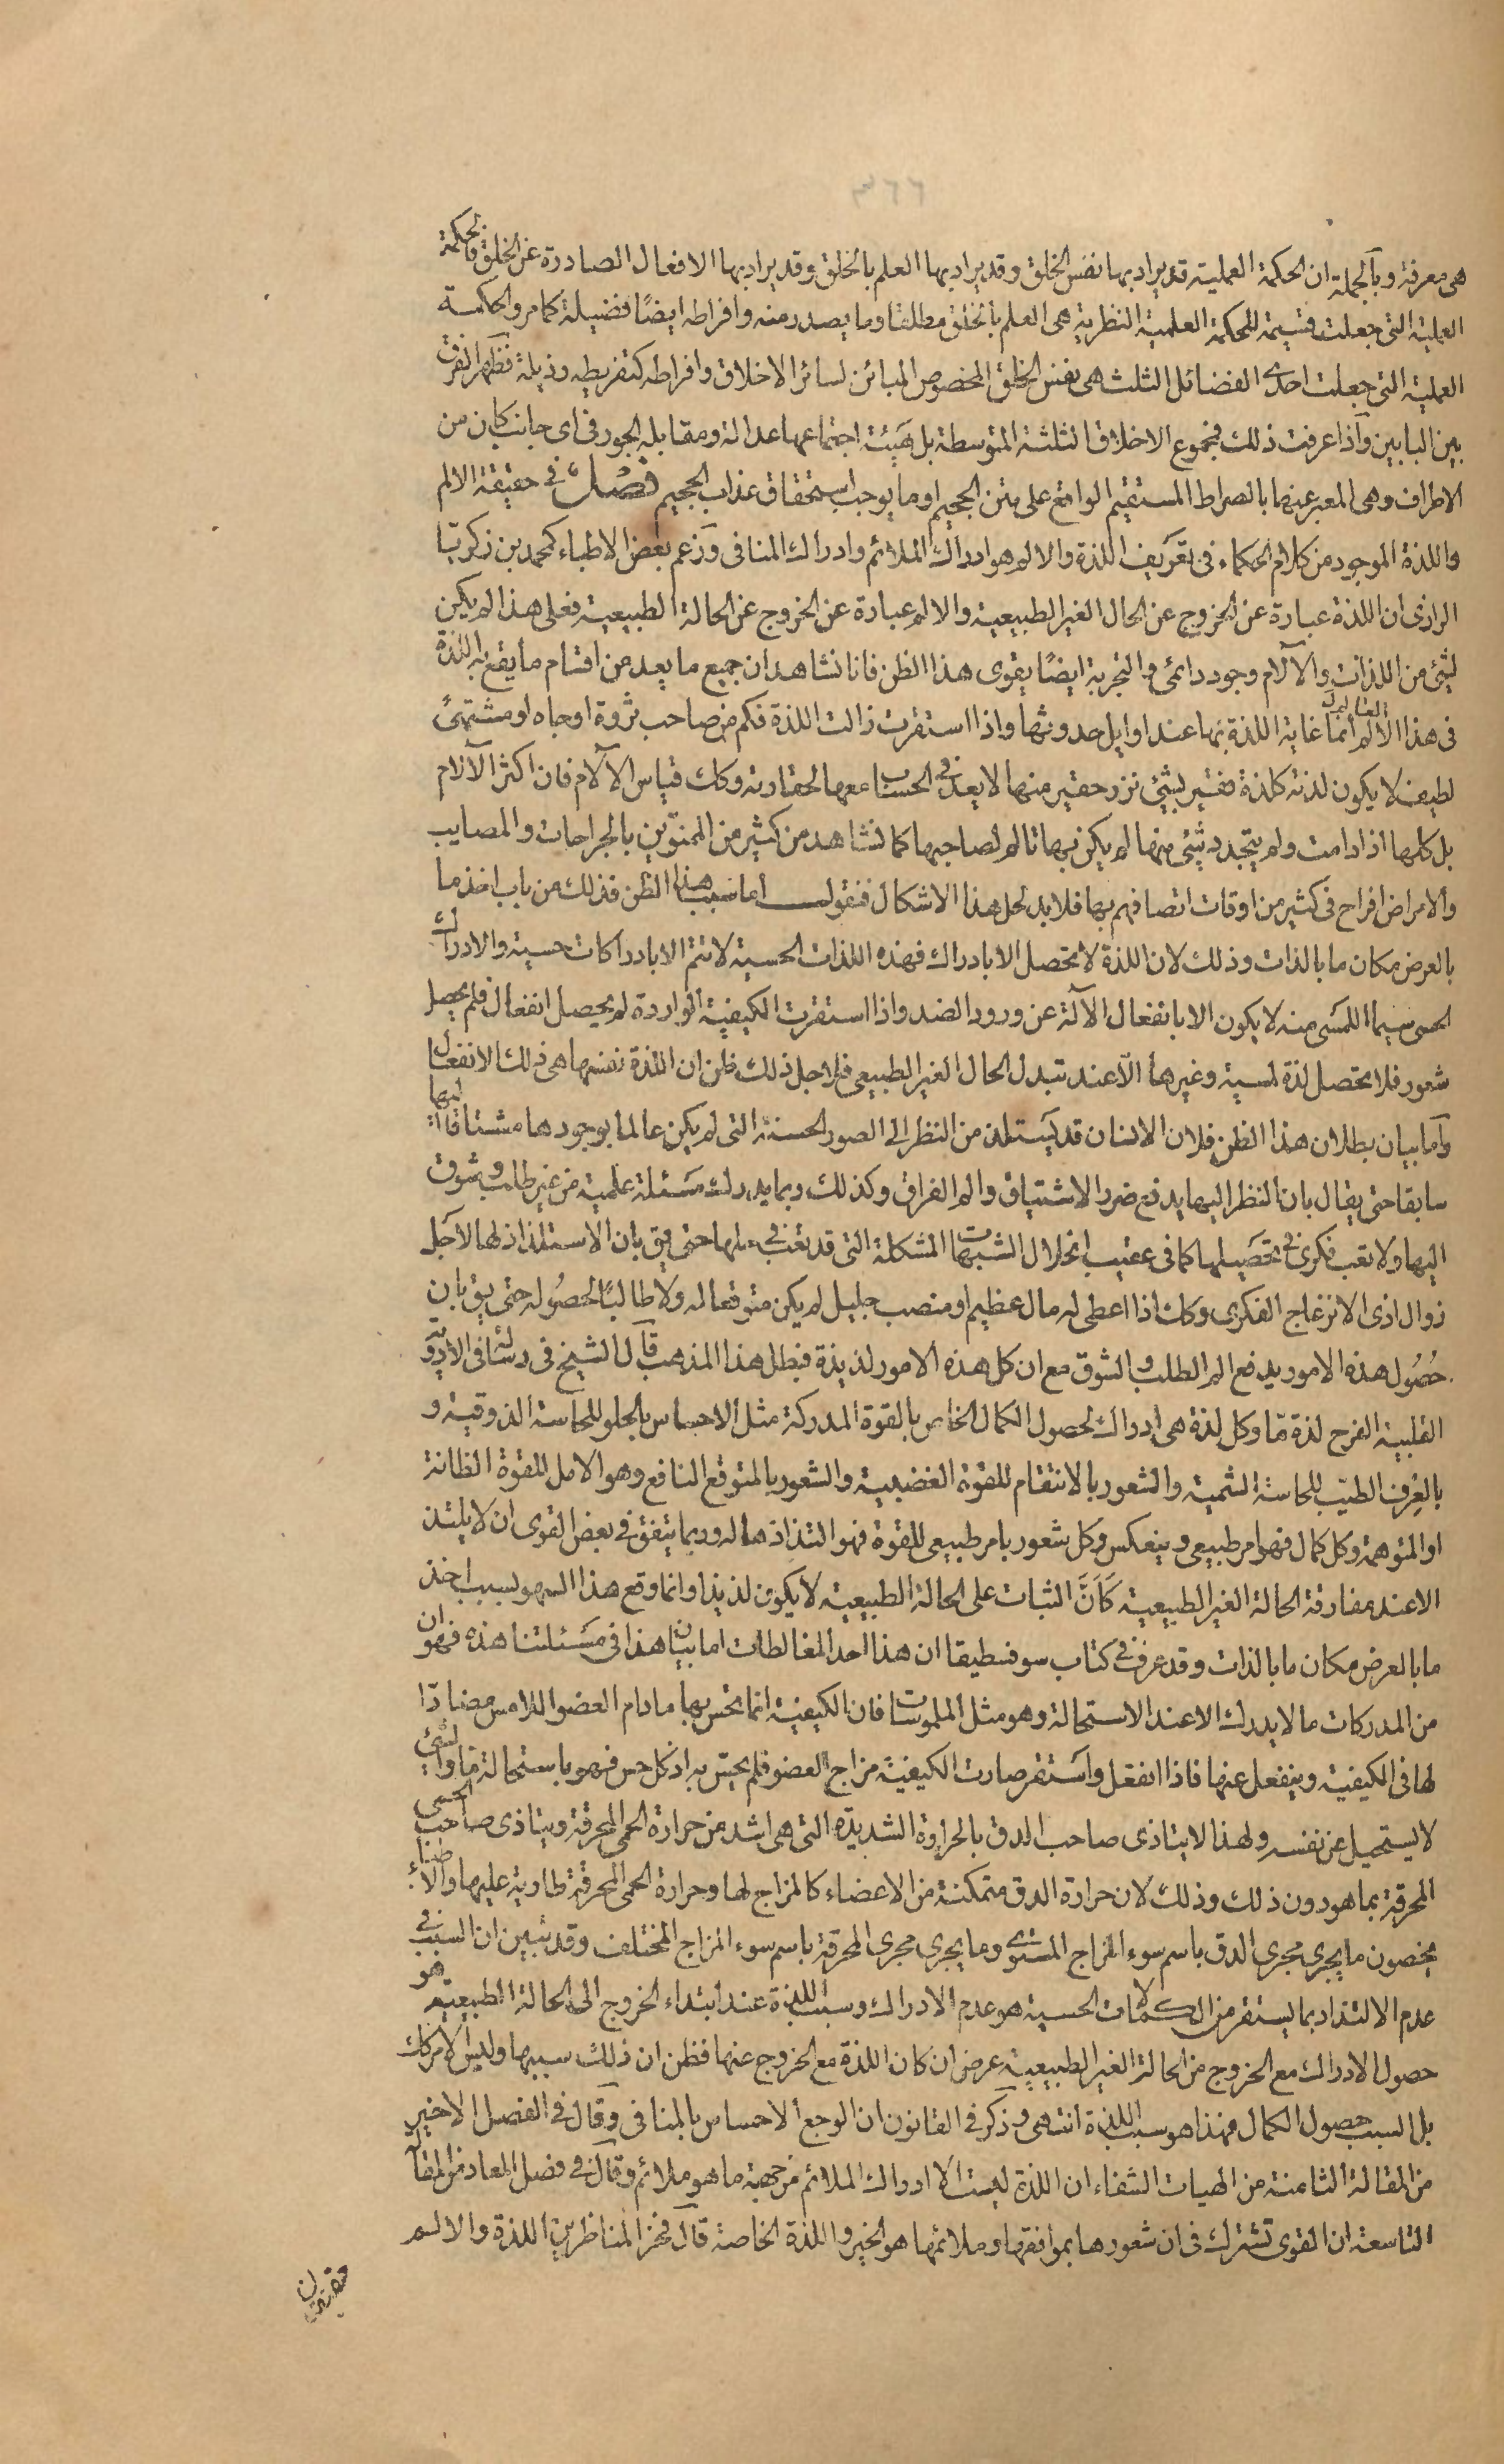 ٣٦٦
هى معرفة وبالجملة ان الحكمة العملية قد يراد بها نفس الخلق وقد يراد بها العلم بالخلق وقد يراد بها الافعال الصادرة عن الخلق فالحكمة
العملية التى جعلت قسيمة للحكمة العلمية النظرية هى العلم بالخلق مطلقا وما يصدر منه وافراطه ايضًا فضيلة كما مر والحكمة
العملية التى جعلت احدى الفضائل الثلث هى نفس الخلق المخصوص المبائن لسائر الاخلاق وافراطه كتفريطه رذيلة فظهر الفرق
بين البابين واذا عرفت ذلك فمجموع الاخلاق الثلثة المتوسطة بل هيئة اجتماعها عدالة ومقابله الجور فى اى جانب كان من
الاطراف وهى المعبر عنها بالصراط المستقيم الواقع على متن الجحيم او ما يوجب استحقاق عذاب الجحيم فصل فى حقيقة الالم
واللذة الموجود من كلام الحكماء فى تعريف اللذة والالم هو ادراك الملائم وادراك المنافى وزعم بعض الاطباء كمحمد بن زكريا
الرازى ان اللذة عبارة عن الخروج عن الحال الغير الطبيعية والالم عبارة عن الخروج عن الحالة الطبيعية فعلى هذا لم يكن
لشئ من اللذات والآلام وجود دائمى والتجربة ايضًا يقوى هذا الظن فانا نشاهد ان جميع ما يعد من اقسام ما يقع به اللذة
فى هذا العالم انما غاية اللذة بها عند اوايل حدوثها واذا استقرت زالت اللذة فكم من صاحب ثروة او جاه او مشتهى
لطيف لا يكون لذته كلذة فقير بشئ نزر حقير منها لا يعد فى الحساب معها لحقارته وكك قياس الآلام فان اكثر الآلام
بل كلها اذا دامت ولم يتجدد شئ منها لم يكن بها تالم لصاحبها كما نشاهد من كثير من الممنوّين بالجراحات والمصايب
والامراض افراح فى كثير من اوقات اتصافهم بها فلا بد لحل هذا الاشكال فنقول اما سبب هذا الظن فذلك من باب اخذ ما
بالعرض مكان ما بالذات وذلك لان اللذة لا تحصل الا بادراك فهذه اللذات الحسية لا تتم الا بادراكات حسية والادراك
الحسى سيما اللمسى منه لا يكون الا بانفعال الآلة عن ورود الضد واذا استقرت الكيفية الواردة لم يحصل انفعال فلم يحصل
شعور فلا تحصل لذة لمسية وغيرها الّا عند تبدل الحال الغير الطبيعى فلاجل ذلك ظن ان اللذة نفسها هى ذلك الانفعال
واما بيان بطلان هذا الظن فلان الانسان قد يستلذ من النظر الى الصور الحسنة التى لم يكن عالما بوجودها مشتاقا اليها
سابقا حتى يقال بان النظر اليها يدفع ضرر الاشتياق والم الفراق وكذلك ربما يدرك مسئلة علمية من غير طلب وشوق
اليها ولا تعب فكرى فى تحصيلها كما فى عقيب انحلال الشبهات المشكلة التى قد تعب فى حلها حتى يق بان الاستلذاذ لها لاجل
زوال اذى الانزعاج الفكرى وكك اذا اعطى له مال عظيم او منصب جليل لم يكن متوقعا له ولا طالبًا لحصوله حتى يق بان
حصُول هذه الامور يدفع الم الطلب والشوق مع ان كل هذه الامور لذيذة فبطل هذا المذهب قال الشيخ فى رسالته فى الادوية
القلبية الفرح لذة مّا وكل لذة هى ادراك لحصول الكمال الخاص بالقوة المدركة مثل الاحساس بالحلو للحاسة الذوقية و
بالعرف الطيّب للحاسة الشمية والشعور بالانتقام للقوة الغضبية والشعور بالمتوقع النافع وهو الامل للقوة الظانة
او المتوهمة وكل كمال فهو امر طبيعى وينعكس وكل شعور بامر طبيعى للقوة فهو التذاذ لها وربما يتفق فى بعض القوى ان لا يلتذ
الا عند مفارقة الحالة الغير الطبيعية كَاَنَّ الثبات على الحالة الطبيعية لا يكون لذيذا وانما وقع هذا السهو لسبب اخذ
ما بالعرض مكان ما بالذات وقد عرف فى كتاب سوفسطيقا ان هذا احد المغالطات اما بيان هذا فى مسئلتنا هذه فهو ان
من المدركات ما لا يدرك الا عند الاستحالة وهو مثل الملموسات فان الكيفية انما تحس بها ما دام العضو اللامس مضادّا
لها فى الكيفية وينفعل عنها فاذا انفعل واستقر صارت الكيفية مزاج العضو فلم يحسّ به اذ كل حس فهو باستحالة ما والشئ
لا يستحيل عن نفسه ولهذا لا يتاذى صاحب الدق بالحرارة الشديدة التى هى اشد من حرارة الحمى المحرقة ويتاذى صاحب الحمى
المحرقة بما هو دون ذلك وذلك لان حرارة الدق متمكنة من الاعضاء كالمزاج لها وحرارة الحمى المحرقة طارية عليها والاطباء
يخصون ما يجرى مجرى الدق باسم سوء المزاج المستوى وما يجرى مجرى المحرقة باسم سوء المزاج المختلف وقد تبين ان السبب فى
عدم الالتذاذ بما يستقر من الكمالات الحسية هو عدم الادراك وسبب اللذة عند ابتداء الخروج الى الحالة الطبيعية هو
حصول الادراك مع الخروج من الحالة الغير الطبيعية عرض ان كان اللذة مع الخروج عنها فظن ان ذلك سببها وليس الامر كك
بل السبب حصول الكمال فهذا هو سبب اللذة انتهى وذكر فى القانون ان الوجع الاحساس بالمنافى وقال فى الفصل الاخير
من المقالة الثامنة من الهيات الشفاء ان اللذة ليست الا ادراك الملائم من جهة ما هو ملائم وقال فى فصل المعاد من المقالة
التاسعة ان القوى تشترك فى ان شعورها بموافقها وملائمها هو الخير واللذة الخاصة قال فخر المناظرين اللذة والالم